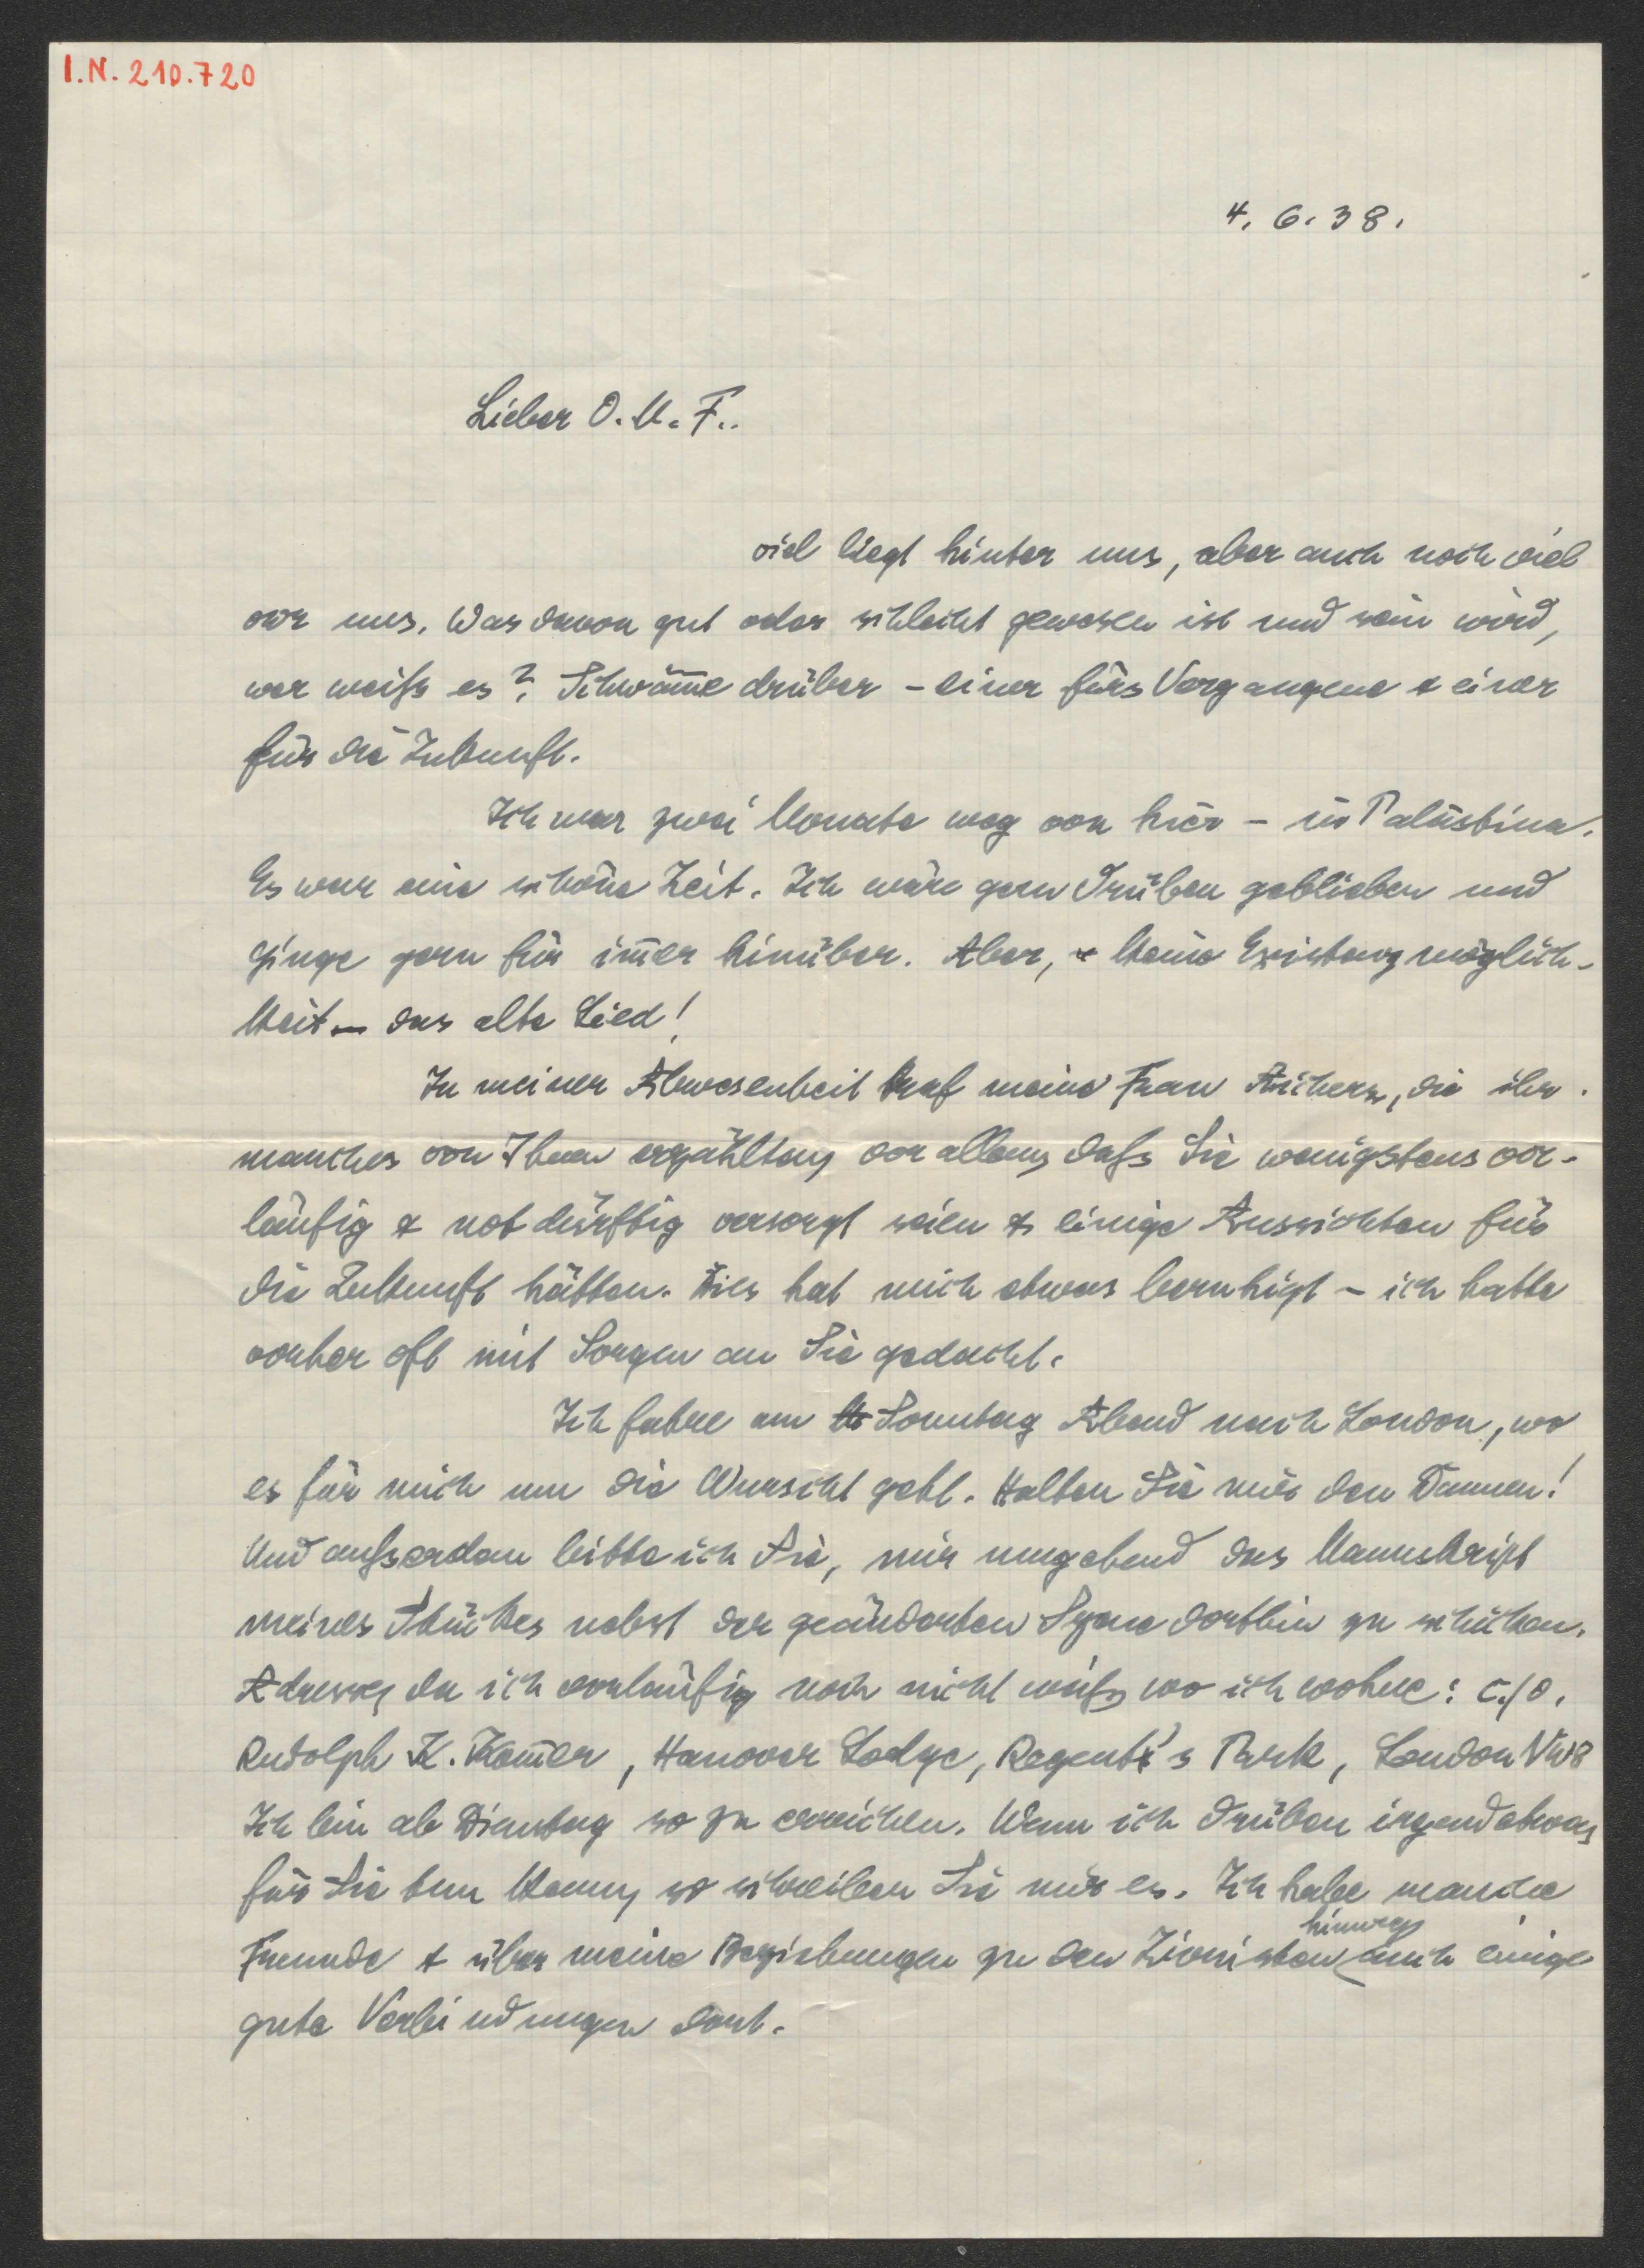 I.N. 210.720
4. 6. 38.
Lieber O. M. F..
viel liegt hinter uns, aber auch noch viel
vor uns. Was davon gut oder schlecht gewesen ist und sein wird,
wer weiß es? Schwäm̄e drüber – einer fürs Vergangene & einer
für die Zukunft.
Ich war zwei Monate weg von hier – in Palästina.
Es war eine schöne Zeit. Ich wäre gern drüben geblieben und
ginge gern für im̄er hinüber. Aber, keine Existenzmöglich-
keit – das alte Lied!
In meiner Abwesenheit traf meine Frau, die ihr
manches von Ihnen erzählten, vor allem, daß Sie wenigstens vor-
läufig & notdürftig versorgt seien & einige Aussichten für
die Zukunft hätten. Dies hat mich etwas beruhigt – ich hatte
vorher oft mit Sorgen an Sie gedacht.
Ich fahre am Sonntag Abend nach London, wo
es für mich um die Wurscht geht. Halten Sie mir den Daumen!
Und außerdem bitte ich Sie, mir umgehend das Manuskript
meines Stückes nebst der geänderten Szene dorthin zu schicken.
Adresse, da ich vorläufig noch nicht weiß, wo ich wohne: c./o.
Rudolph K. Kom̄er, Hanover Lodge, Regent's Park, London NW8
Ich bin ab Dienstag so zu erreichen. Wenn ich drüben irgendetwas
für Sie tun kann, so schreiben Sie mir es. Ich habe manche
Freunde & über meine Beziehungen zu den Zionisten hinweg auch einige
gute Verbindungen dort.